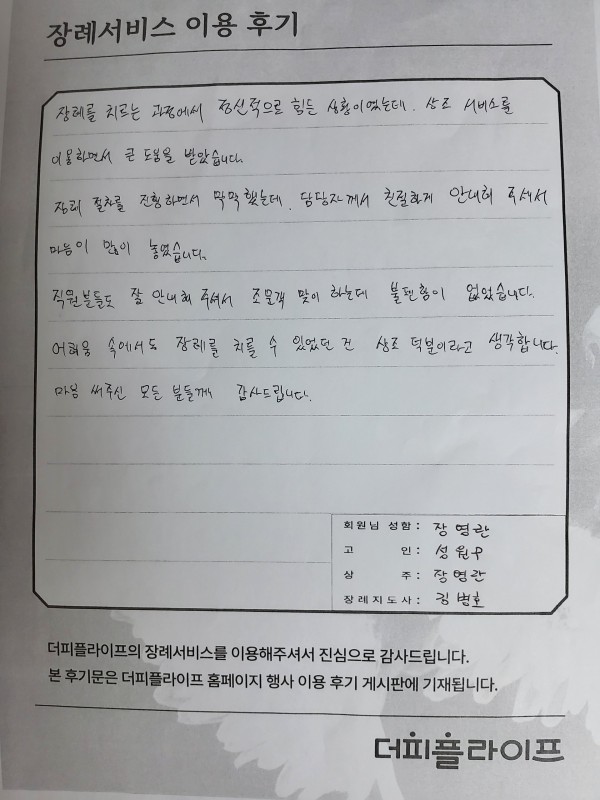 장례서비스 이용 후기
장례를 치르는 과정에서 정신적으로 힘든 상황이였는데. 상조 서비스를
이용하면서 큰 도움을 받았습니다.
장례 절차를 진행하면서 막막했는데. 담당자께서 친절하게 안내해 주셔서
마음이 많이 놓였습니다.
직원분들도 잘 안내해 주셔서 조문객 맞이 하는데 불편함이 없었습니다.
어려움 속에서도 장례를 치를 수 있었던 건 상조 덕분이라고 생각합니다.
마음 써주신 모든 분들께 감사드립니다.
회원님 성함: 장영란
고 인: 성원우
상 주: 장영란
장례지도사: 김병호
더피플라이프의 장례서비스를 이용해주셔서 진심으로 감사드립니다.
본 후기문은 더피플라이프 홈페이지 행사 이용 후기 게시판에 기재됩니다.
더피플라이프